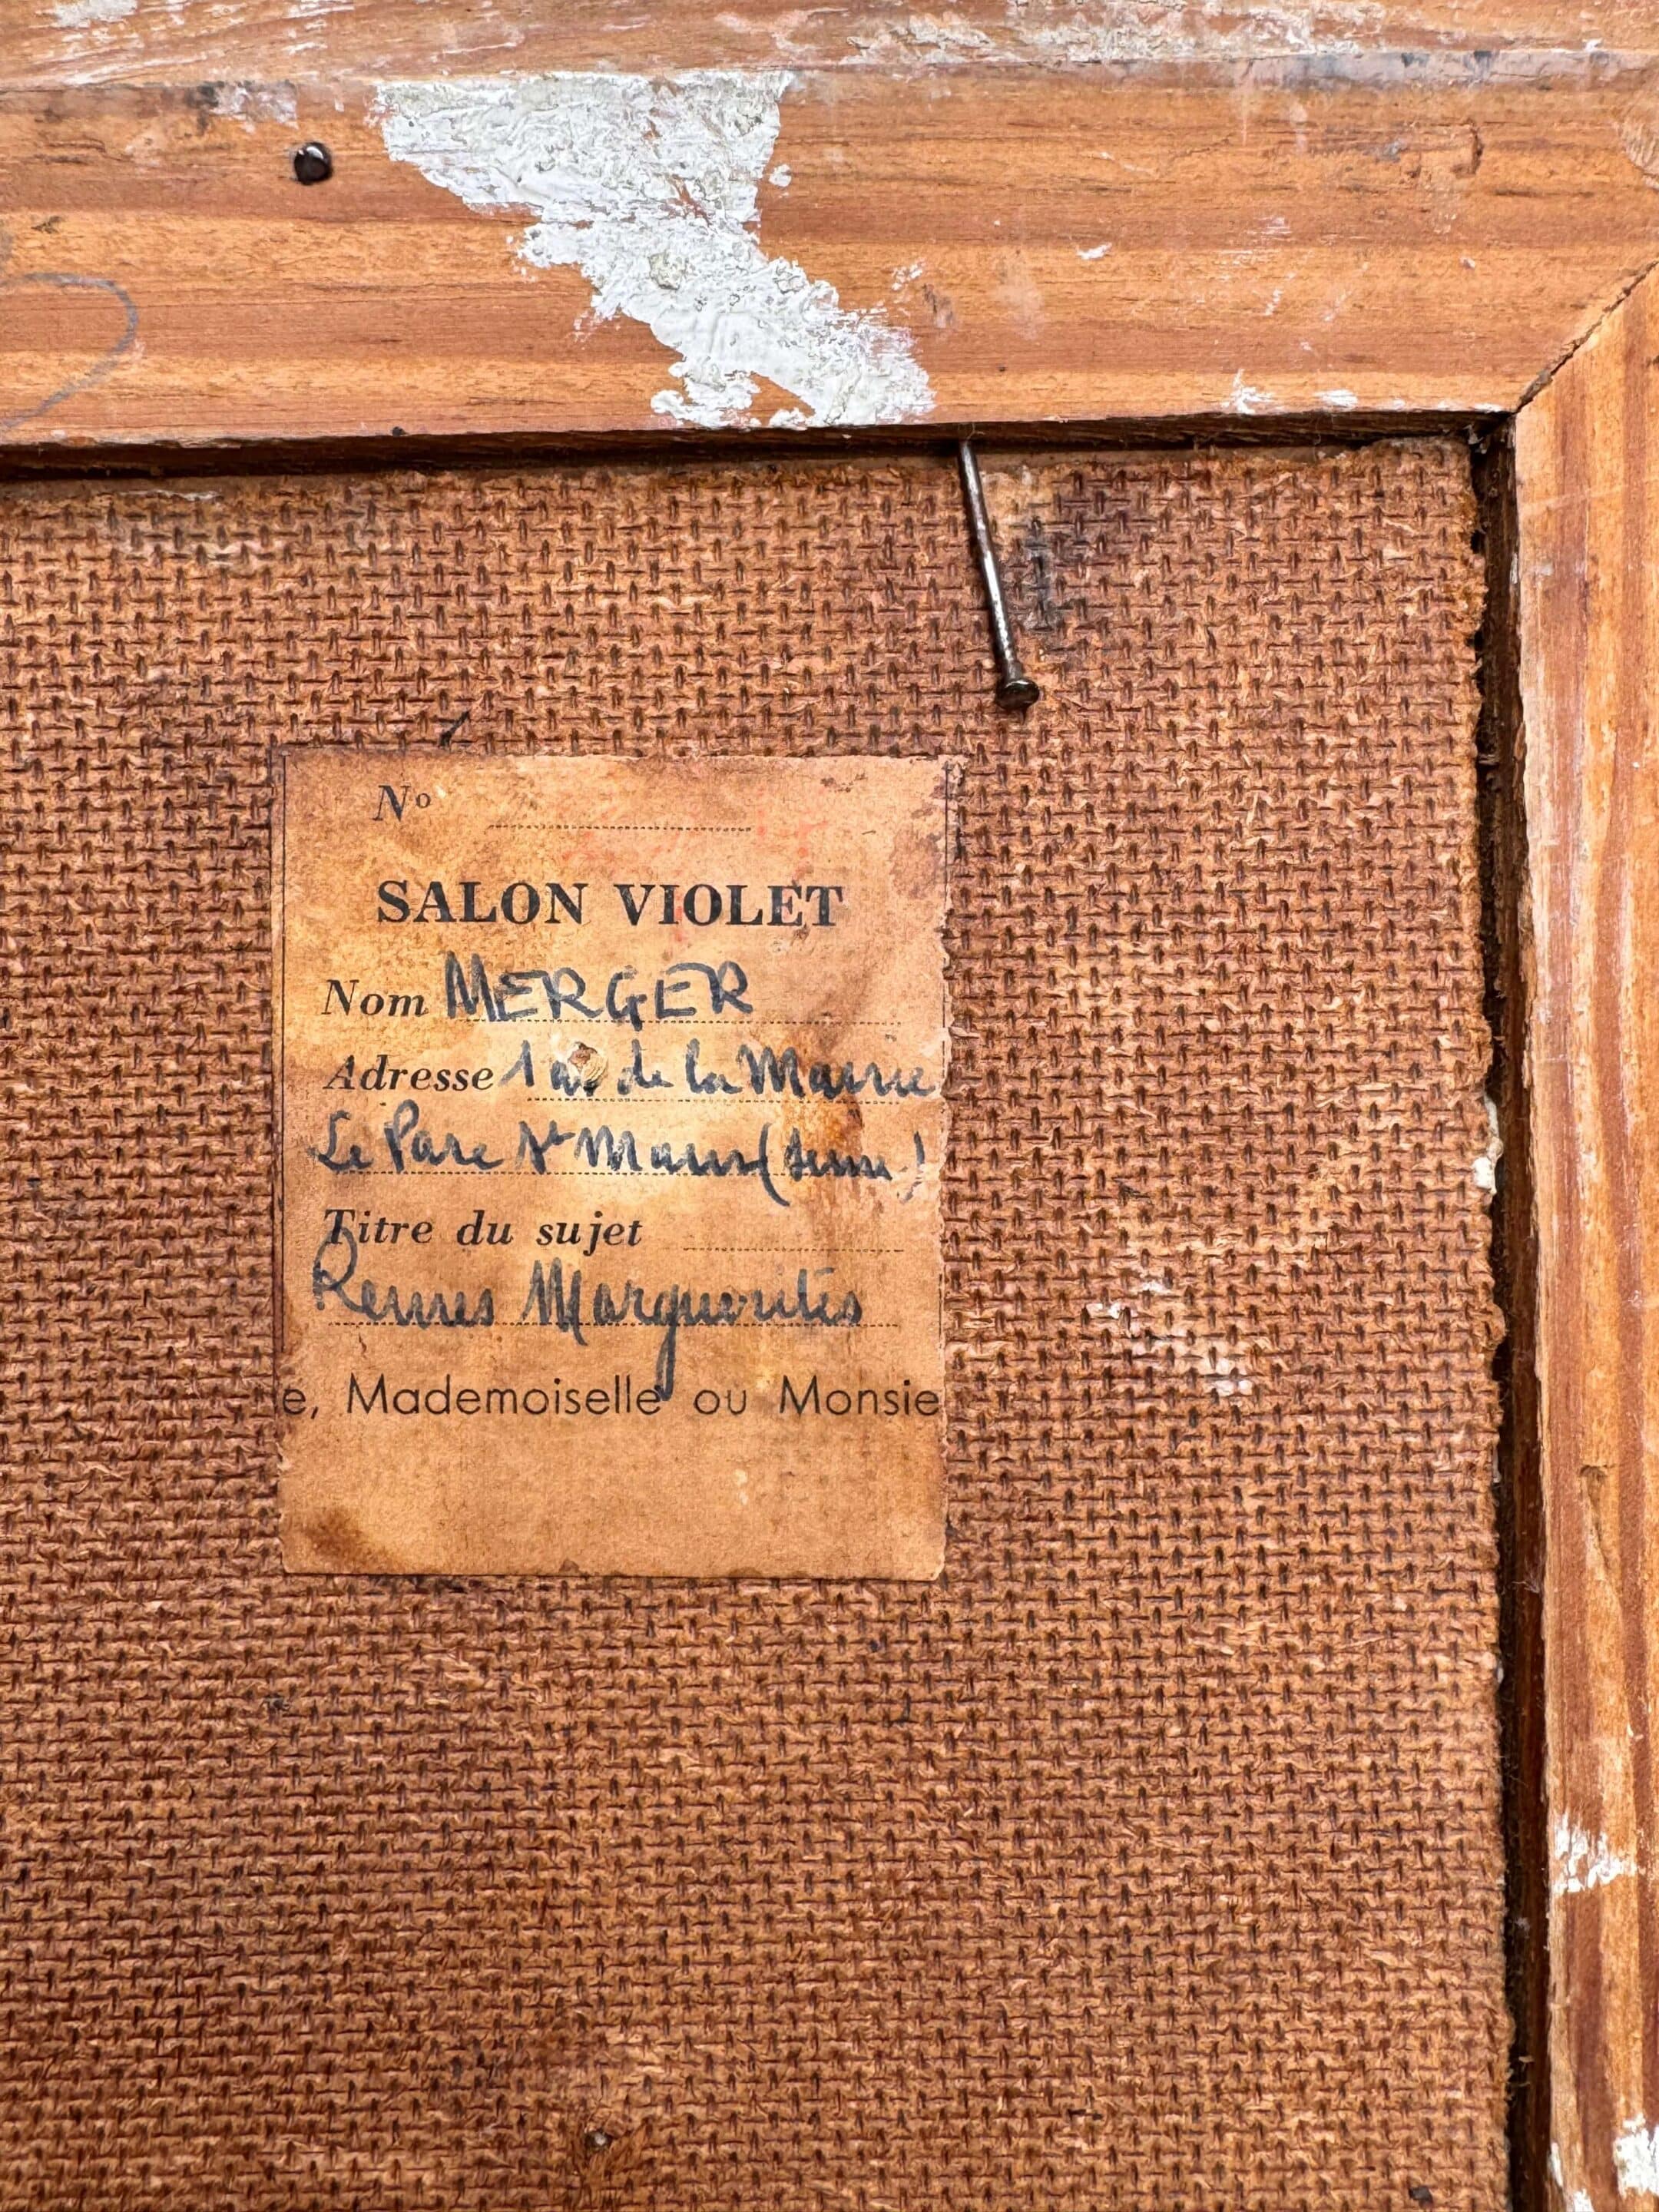 Nº
SALON VIOLET
Nom MERGER
Adresse 1 av. de la Mairie
Le Parc St Maur (Seine)
Titre du sujet
Reines Marguerites
e, Mademoiselle ou Monsie